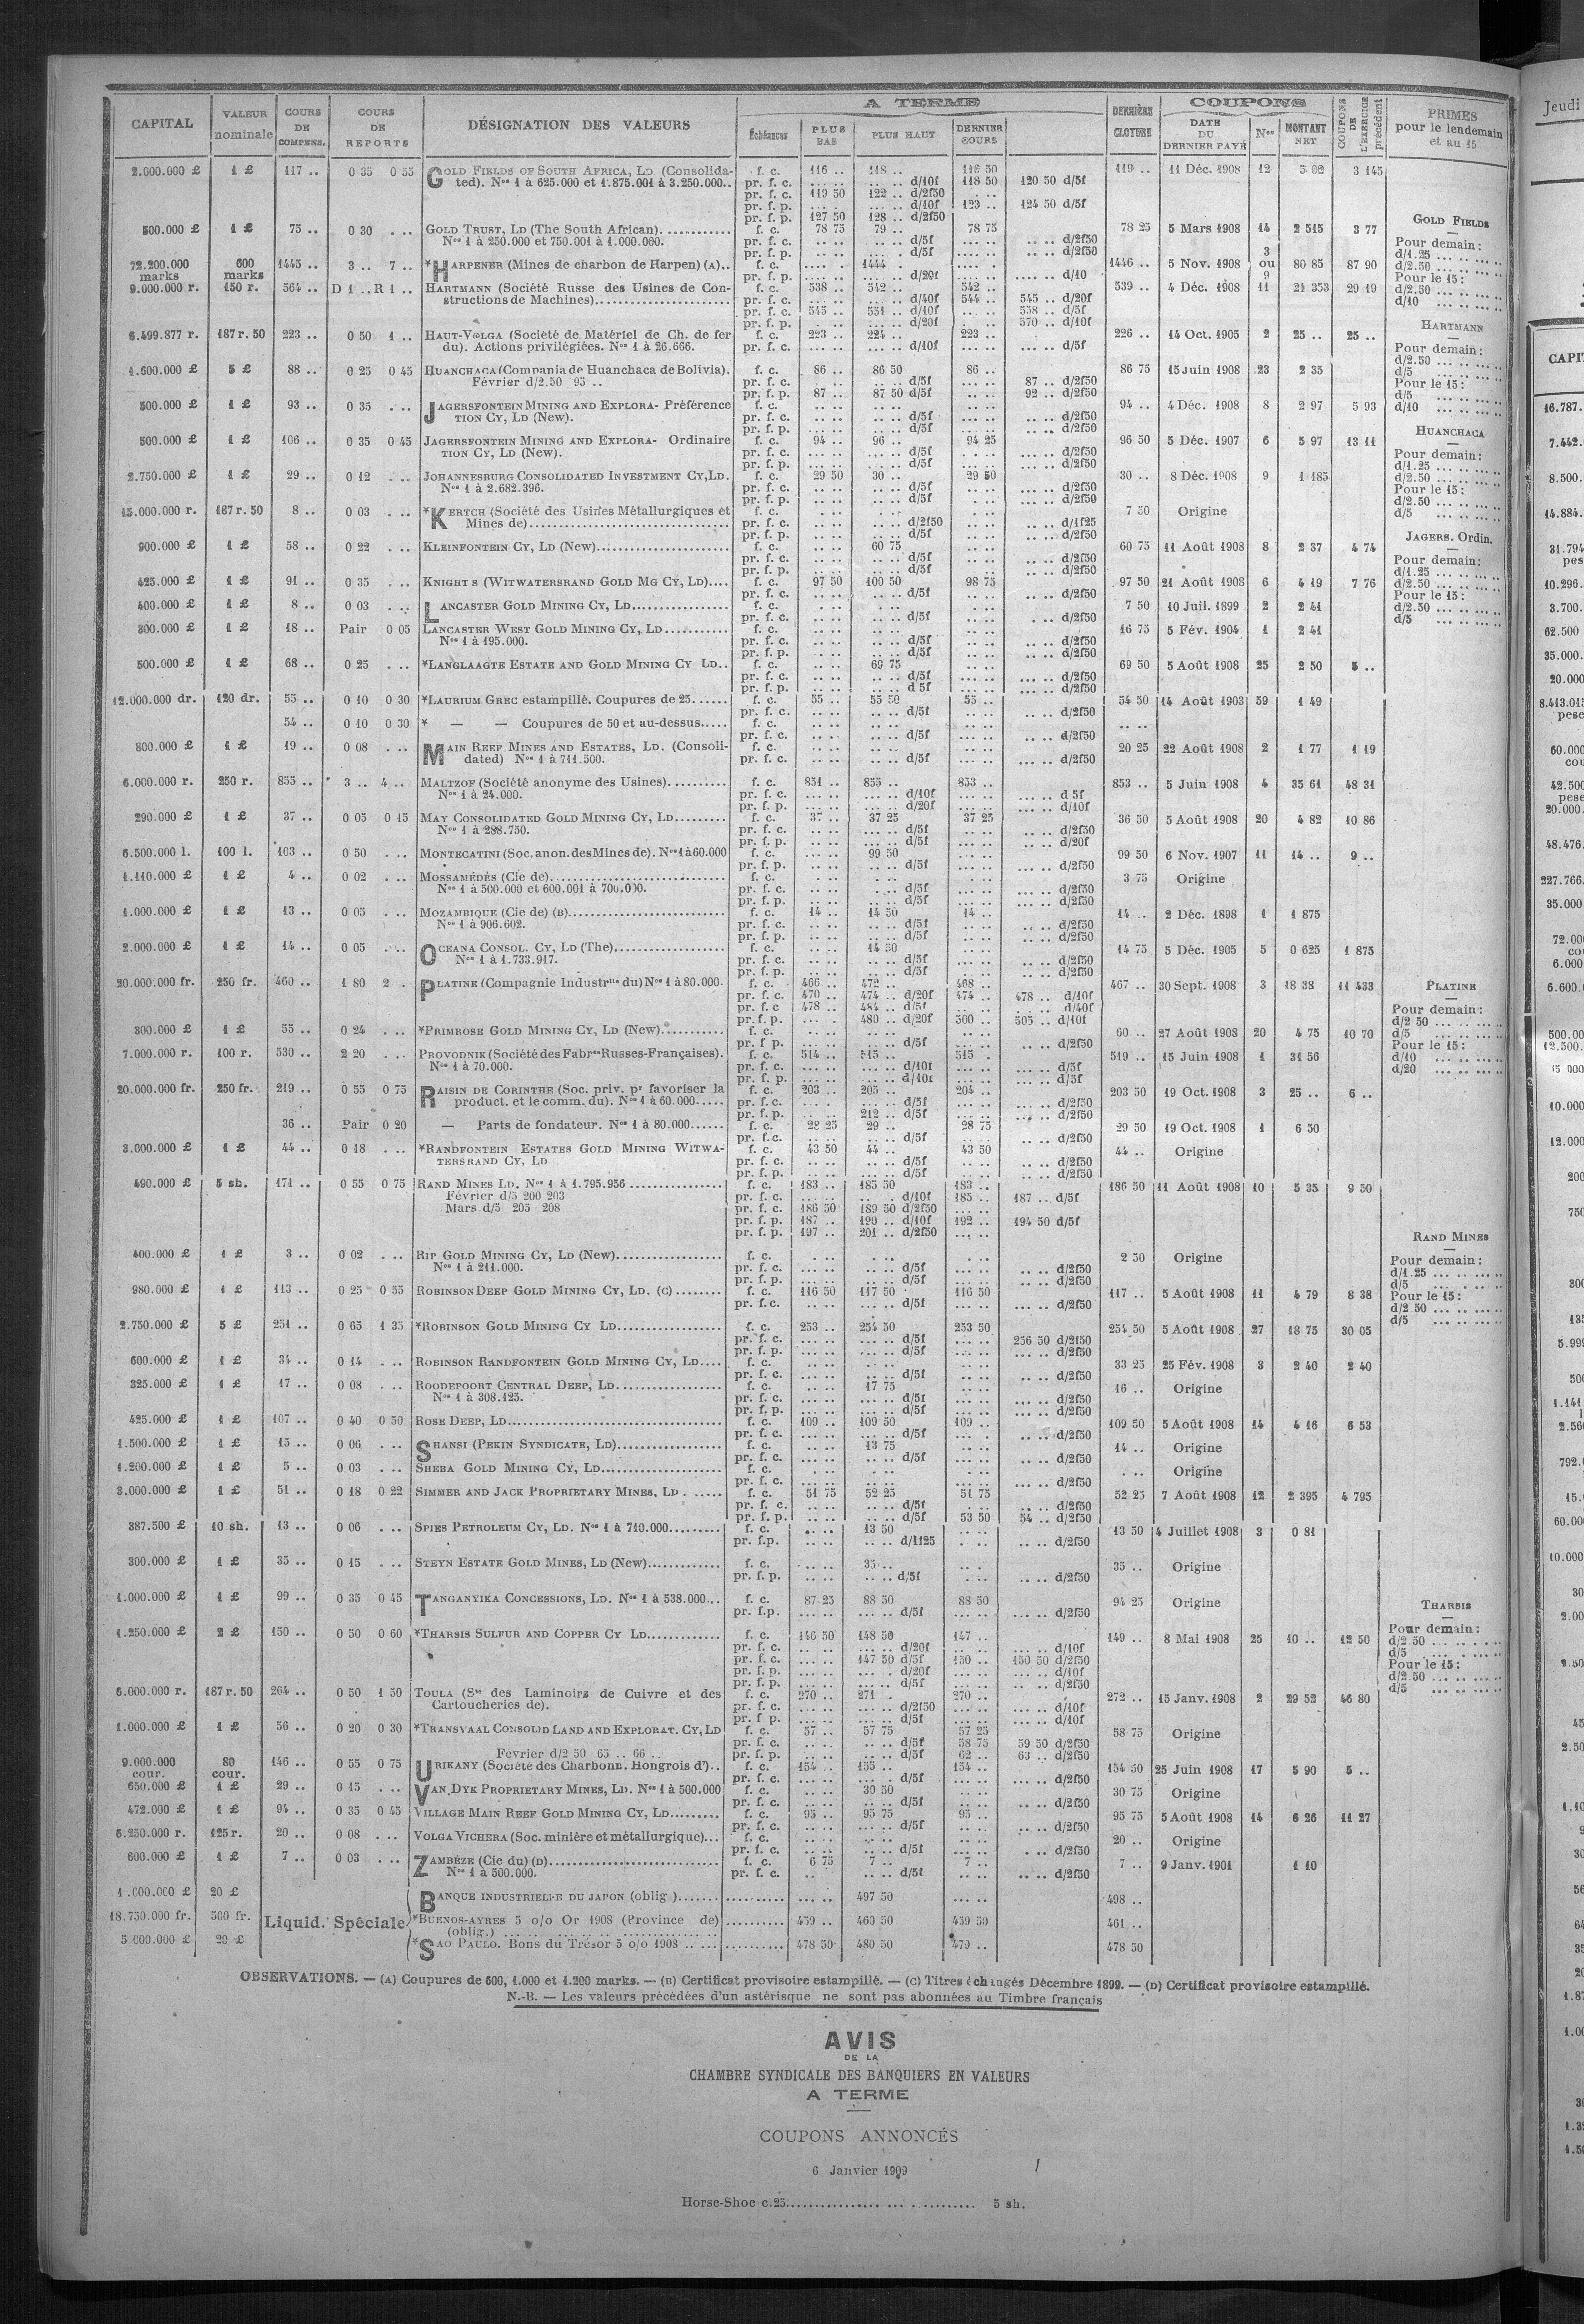 A TERME
COUPONS
CAPITAL
VALEUR nominale
COURS DE COMPENS.
COURS DE REPORTS
DÉSIGNATION DES VALEURS
Échéances
PLUS BAS
PLUS HAUT
DERNIER COURS
DERNIÈRE CLOTURE
DATE DU DERNIER PAYÉ
Nos
MONTANT NET
COUPONS DE L'EXERCICE précédent
PRIMES pour le lendemain et au 15
2.000.000 £ 1 £ 117 .. 0 35 0 55 GOLD FIELDS OF SOUTH AFRICA, LD (Consolida- f. c. 116 .. 118 .. 118 50 119 .. 11 Déc. 1908 12 3 145
ted). Nos 1 à 625.000 et 1.875.001 à 3.250.000.. pr. f. c. d/10f 118 50 120 50 d/5f
pr. f. c. 119 50 122 .. d/2f50
pr. f. p. d/10f 123 .. 124 50 d/5f
pr. f. p. 127 50 128 .. d/2f50
500.000 £ 1 £ 75 .. 0 30 GOLD TRUST, LD (The South African) f. c. 78 75 79 .. 78 75 78 25 5 Mars 1908 14 2 515 3 77
Nos 1 à 250.000 et 750.001 à 1.000.000. pr. f. c. d/5f d/2f50
pr. f. p. d/5f d/2f50
72.200.000 marks 600 marks 1445 .. 3 .. 7 .. *HARPENER (Mines de charbon de Harpen) (A).. f. c. 1444 . 1446 .. 5 Nov. 1908 3 ou 9 80 85 87 90
pr. f. p. d/20f d/10
9.000.000 r. 150 r. 564 .. D 1 .. R 1 .. HARTMANN (Société Russe des Usines de Con- f. c. 538 .. 542 .. 542 .. 539 .. 4 Déc. 1908 11 21 353 29 19
structions de Machines) pr. f. c. d/40f 544 .. 545 .. d/20f
pr. f. c. 545 .. 551 .. d/10f 558 .. d/5f
pr. f. p. d/20f 570 .. d/10f
6.499.877 r. 187 r. 50 223 .. 0 50 1 .. HAUT-VOLGA (Société de Matériel de Ch. de fer f. c. 223 .. 224 .. 223 .. 226 .. 14 Oct. 1905 2 25 .. 25 ..
du). Actions privilégiées. Nos 1 à 26.666. pr. f. c. d/10f d/5f
1.600.000 £ 5 £ 88 .. 0 25 0 45 HUANCHACA (Compania de Huanchaca de Bolivia). f. c. 86 .. 86 50 86 .. 86 75 15 Juin 1908 23 2 35
Février d/2.50 95 .. pr. f. c. d/5f 87 .. d/2f50
pr. f. p. 87 .. 87 50 d/5f 92 .. d/2f50
500.000 £ 1 £ 93 .. 0 35 JAGERSFONTEIN MINING AND EXPLORA- Préférence f. c. 94 .. 4 Déc. 1908 8 2 97 5 93
TION CY, LD (New). pr. f. c. d/5f d/2f50
pr. f. p. d/5f d/2f50
500.000 £ 1 £ 106 .. 0 35 0 45 JAGERSFONTEIN MINING AND EXPLORA- Ordinaire f. c. 94 .. 96 .. 94 25 96 50 5 Déc. 1907 6 5 97 13 11
TION CY, LD (New). pr. f. c. d/5f d/2f50
pr. f. p. d/5f d/2f50
2.750.000 £ 1 £ 29 .. 0 12 JOHANNESBURG CONSOLIDATED INVESTMENT CY, LD. f. c. 29 50 30 .. 29 50 30 .. 8 Déc. 1908 9 1 185
Nos 1 à 2.682.396. pr. f. c. d/5f d/2f50
pr. f. p. d/5f d/2f50
15.000.000 r. 187 r. 50 8 .. 0 03 *KERTCH (Société des Usines Métallurgiques et f. c. 7 50 Origine
Mines de) pr. f. c. d/2f50 d/1f25
pr. f. p. d/5f d/2f50
900.000 £ 1 £ 58 .. 0 22 KLEINFONTEIN CY, LD (New) f. c. 60 75 60 75 11 Août 1908 8 2 37 4 74
pr. f. c. d/5f d/2f50
pr. f. p. d/5f d/2f50
425.000 £ 1 £ 91 .. 0 35 KNIGHT S (WITWATERSRAND GOLD MG CY, LD).... f. c. 97 50 100 50 98 75 97 50 21 Août 1908 6 4 19 7 76
pr. f. c. d/5f d/2f50
400.000 £ 1 £ 8 .. 0 03 LANCASTER GOLD MINING CY, LD f. c. 7 50 10 Juil. 1899 2 2 41
pr. f. c. d/5f d/2f50
300.000 £ 1 £ 18 .. Pair 0 05 LANCASTER WEST GOLD MINING CY, LD f. c. 16 75 5 Fév. 1904 1 2 41
Nos 1 à 195.000. pr. f. c. d/5f d/2f50
pr. f. p. d/5f d/2f50
500.000 £ 1 £ 68 .. 0 25 *LANGLAAGTE ESTATE AND GOLD MINING CY LD.. f. c. 69 75 69 50 5 Août 1908 25 2 50 5 ..
pr. f. c. d/5f d/2f50
pr. f. p. d 5f d/2f50
12.000.000 dr. 120 dr. 55 .. 0 10 0 30 *LAURIUM GREC estampillé. Coupures de 25 f. c. 55 .. 55 50 55 .. 54 50 14 Août 1903 59 1 49
pr. f. c. d/5f d/2f50
54 .. 0 10 0 30 * — — Coupures de 50 et au-dessus..... f. c.
pr. f. c. d/5f d/2f50
800.000 £ 1 £ 19 .. 0 08 MAIN REEF MINES AND ESTATES, LD. (Consoli- f. c. 20 25 22 Août 1908 2 1 77 1 19
dated) Nos 1 à 711.500. pr. f. c. d/5f d/2f50
6.000.000 r. 250 r. 855 .. 3 .. 4 .. MALTZOF (Société anonyme des Usines) f. c. 851 .. 855 .. 853 .. 853 .. 5 Juin 1908 4 35 61 48 31
Nos 1 à 24.000. pr. f. c. d/10f d 5f
pr. f. p. d/20f d/10f
290.000 £ 1 £ 37 .. 0 05 0 15 MAY CONSOLIDATED GOLD MINING CY, LD f. c. 37 .. 37 25 37 25 36 50 5 Août 1908 20 4 82 10 86
Nos 1 à 288.750. pr. f. c. d/5f d/2f50
pr. f. p. d/5f d/20f
6.500.000 l. 100 l. 103 .. 0 50 MONTECATINI (Soc. anon. des Mines de). Nos 1 à 60.000 f. c. 99 50 99 50 6 Nov. 1907 11 14 .. 9 ..
pr. f. p. d/5f d/2f50
1.110.000 £ 1 £ 4 .. 0 02 MOSSAMÉDÈS (Cie de) f. c. 3 75 Origine
Nos 1 à 500.000 et 600.001 à 700.000. pr. f. c. d/5f d/2f50
pr. f. p. d/5f d/2f50
1.000.000 £ 1 £ 13 .. 0 05 MOZAMBIQUE (Cie de) (B) f. c. 14 .. 14 50 14 .. 14 .. 2 Déc. 1898 1 1 875
Nos 1 à 906.602. pr. f. c. d/5f d/2f50
pr. f. p. d/5f d/2f50
2.000.000 £ 1 £ 14 .. 0 05 OCEANA CONSOL. CY, LD (The) f. c. 14 50 14 75 5 Déc. 1905 5 0 625 1 875
Nos 1 à 1.733.917. pr. f. c. d/5f d/2f50
pr. f. p. d/5f d/2f50
20.000.000 fr. 250 fr. 460 .. 1 80 2 . PLATINE (Compagnie Industrlle du) Nos 1 à 80.000. f. c. 466 .. 472 .. 468 .. 467 .. 30 Sept. 1908 3 18 38 11 433
pr. f. c. 470 .. 474 .. d/20f 474 .. 478 .. d/10f
pr. f. c 478 .. 484 .. d/5f d/40f
pr. f. p. 480 .. d/20f 500 .. 505 .. d/10f
300.000 £ 1 £ 55 .. 0 24 *PRIMROSE GOLD MINING CY, LD (New) f. c. 60 .. 27 Août 1908 20 4 75 10 70
pr. f p. d/5f d/2f50
7.000.000 r. 100 r. 530 .. 2 20 PROVODNIK (Société des Fabres Russes-Françaises). f. c. 514 .. 515 .. 515 . 519 .. 15 Juin 1908 1 31 56
Nos 1 à 70.000. pr. f. c. d/10f d/5f
pr. f. p. d/10f d/5f
20.000.000 fr. 250 fr. 219 .. 0 55 0 75 RAISIN DE CORINTHE (Soc. priv. pr favoriser la f. c. 203 .. 205 .. 204 .. 203 50 19 Oct. 1908 3 25 .. 6 ..
product. et le comm. du). Nos 1 à 60.000..... pr. f. c. d/5f d/2f50
pr. f. p. 212 .. d/5f d/2f50
36 .. Pair 0 20 — Parts de fondateur. Nos 1 à 80.000...... f. c. 28 25 29 .. 28 75 29 50 19 Oct. 1908 1 6 50
pr. f. c. d/5f d/2f50
3.000.000 £ 1 £ 44 .. 0 18 *RANDFONTEIN ESTATES GOLD MINING WITWA- f. c. 43 50 44 .. 43 50 44 .. Origine
TERSRAND CY, LD pr. f. c. d/5f d/2f50
pr. f. p. d/5f d/2f50
490.000 £ 5 sh. 171 .. 0 55 0 75 RAND MINES LD. Nos 1 à 1.795.956 f. c. 183 .. 185 50 183 .. 186 50 11 Août 1908 10 5 35 9 50
Février d/5 200 203 pr. f. c. d/10f 185 .. 187 .. d/5f
Mars d/5 205 208 pr. f. c. 186 50 189 50 d/2f50
pr. f. p. 187 .. 190 .. d/10f 192 .. 194 50 d/5f
pr. f. p. 197 .. 201 .. d/2f50
400.000 £ 1 £ 3 .. 0 02 RIP GOLD MINING CY, LD (New) f. c. 2 50 Origine
Nos 1 à 211.000. pr. f. c. d/5f d/2f50
pr. f. p. d/5f d/2f50
980.000 £ 1 £ 113 .. 0 25 0 55 ROBINSON DEEP GOLD MINING CY, LD. (C) f. c. 116 50 117 50 116 50 117 .. 5 Août 1908 11 4 79 8 38
pr. f. c. d/5f d/2f50
2.750.000 £ 5 £ 251 .. 0 65 1 35 *ROBINSON GOLD MINING CY LD f. c. 253 .. 254 50 253 50 254 50 5 Août 1908 27 18 75 30 05
pr. f. c. d/5f 256 50 d/2f50
pr. f. p. d/5f d/2f50
600.000 £ 1 £ 34 .. 0 14 ROBINSON RANDFONTEIN GOLD MINING CY, LD.... f. c. 33 25 25 Fév. 1908 3 2 40 2 40
pr. f. c. d/5f d/2f50
325.000 £ 1 £ 17 .. 0 08 ROODEPOORT CENTRAL DEEP, LD f. c. 17 75 16 .. Origine
Nos 1 à 308.125. pr. f. c. d/5f d/2f50
pr. f. p. d/5f d/2f50
425.000 £ 1 £ 107 .. 0 40 0 50 ROSE DEEP, LD f. c. 109 .. 109 50 109 .. 109 50 5 Août 1908 14 4 16 6 53
pr. f. c. d/5f d/2f50
1.500.000 £ 1 £ 15 .. 0 06 SHANSI (PEKIN SYNDICATE, LD) f. c. 13 75 14 .. Origine
pr. f. c. d/5f d/2f50
1.200.000 £ 1 £ 5 .. 0 03 SHEBA GOLD MINING CY, LD f. c. Origine
pr. f. c. d/2f50
3.000.000 £ 1 £ 51 .. 0 18 0 22 SIMMER AND JACK PROPRIETARY MINES, LD f. c. 51 75 52 25 51 75 52 25 7 Août 1908 12 2 395 4 795
pr. f. c. d/5f d/2f50
pr. f. p. d/5f 53 50 54 .. d/2f50
387.500 £ 10 sh. 13 .. 0 06 SPIES PETROLEUM CY, LD. Nos 1 à 710.000 f. c. 13 50 13 50 4 Juillet 1908 3 0 81
pr. f.p. d/1f25 d/2f50
300.000 £ 1 £ 35 .. 0 15 STEYN ESTATE GOLD MINES, LD (New) f. c. 35 .. 35 .. Origine
pr. f. p. d/5f d/2f50
1.000.000 £ 1 £ 99 .. 0 35 0 45 TANGANYIKA CONCESSIONS, LD. Nos 1 à 538.000 f. c. 87 25 88 50 88 50 94 25 Origine
pr. f.p. d/5f d/2f50
1.250.000 £ 2 £ 150 .. 0 50 0 60 *THARSIS SULFUR AND COPPER CY LD f. c. 146 50 148 50 147 .. 149 .. 8 Mai 1908 25 10 .. 12 50
pr. f. c. d/20f d/10f
pr. f. c. 147 50 d/5f 150 .. 150 50 d/2f50
pr. f. p. d/20f d/10f
pr. f. p. d/5f d/2f50
6.000.000 r. 187 r. 50 264 .. 0 50 1 50 TOULA (Sté des Laminoirs de Cuivre et des f. c. 270 .. 271 . 270 .. 272 .. 15 Janv. 1908 2 29 52 46 80
Cartoucheries de). pr. f. c. d/2f50 d/10f
pr. f p. d/5f d/10f
1.000.000 £ 1 £ 56 .. 0 20 0 30 *TRANSVAAL CONSOLID LAND AND EXPLORAT. CY, LD f. c. 57 .. 57 75 57 25 58 75 Origine
pr. f. c. d/5f 58 75 59 50 d/2f50
Février d/2 50 65 .. 66 .. pr. f. p. d/5f 62 .. 63 .. d/2f50
9.000.000 cour. 80 cour. 146 .. 0 55 0 75 URIKANY (Société des Charbonn. Hongrois d').. f. c. 154 .. 155 .. 154 .. 154 50 25 Juin 1908 17 5 90 5 ..
pr. f. c. d/5f d/2f50
650.000 £ 1 £ 29 .. 0 15 VAN DYK PROPRIETARY MINES, LD. Nos 1 à 500.000 f. c. 30 50 30 75 Origine
pr. f. c. d/5f d/2f50
472.000 £ 1 £ 94 .. 0 35 0 45 VILLAGE MAIN REEF GOLD MINING CY, LD f. c. 95 .. 95 75 95 .. 95 75 5 Août 1908 14 6 26 11 27
pr. f. c. d/5f d/2f50
6.250.000 r. 125 r. 20 .. 0 08 VOLGA VICHERA (Soc. minière et métallurgique)... f. c. 20 .. Origine
pr. f. c. d/5f d/2f50
600.000 £ 1 £ 7 .. 0 03 ZAMBÈZE (Cie du) (D) f. c. 6 75 7 .. 7 .. 7 .. 9 Janv. 1901 1 10
Nos 1 à 500.000. pr. f. c. d/5f d/2f50
1.000.000 £ 20 £ BANQUE INDUSTRIELLE DU JAPON (oblig.) 497 50 498 ..
18.750.000 fr. 500 fr. Liquid. Spéciale *BUENOS-AYRES 5 o/o Or 1908 (Province de) 459 .. 460 50 459 50 461 ..
(oblig.)
5 000.000 £ 20 £ *SAO PAULO. Bons du Trésor 5 o/o 1908 478 50 480 50 479 .. 478 50
GOLD FIELDS
Pour demain:
d/1.25
d/2.50
Pour le 15:
d/2.50
d/10
HARTMANN
Pour demain:
d/2.50
d/5
Pour le 15:
d/5
d/10
HUANCHACA
Pour demain:
d/1.25
d/2.50
Pour le 15:
d/2.50
d/5
JAGERS. Ordin.
Pour demain:
d/1.25
d/2.50
Pour le 15:
d/2.50
d/5
PLATINE
Pour demain:
d/2 50
d/5
Pour le 15:
d/10
d/20
RAND MINES
Pour demain:
d/1.25
d/5
Pour le 15:
d/2 50
d/5
THARSIS
Pour demain:
d/2.50
d/5
Pour le 15:
d/2.50
d/5
OBSERVATIONS. — (A) Coupures de 600, 1.000 et 1.200 marks. — (B) Certificat provisoire estampillé. — (C) Titres échangés Décembre 1899. — (D) Certificat provisoire estampillé.
N.-B. — Les valeurs précédées d'un astérisque ne sont pas abonnées au Timbre français
AVIS
DE LA
CHAMBRE SYNDICALE DES BANQUIERS EN VALEURS
A TERME
COUPONS ANNONCÉS
6 Janvier 1909
Horse-Shoe c.23 5 sh.
Jeudi